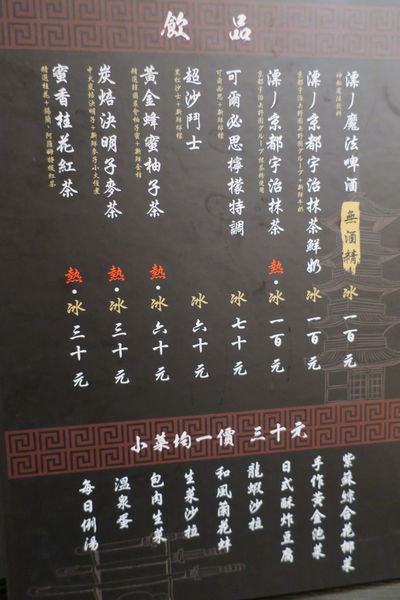 飲品
漂ノ魔法啤酒 無酒精 冰 一百元
漂ノ京都宇治抹茶鮮奶 冰 一百元
漂ノ京都宇治抹茶 熱·冰 一百元
可爾必思檸檬特調 冰 七十元
超沙鬥士 冰 六十元
黑松沙士+新鮮檸檬
黃金蜂蜜柚子茶 熱·冰 六十元
炭焙決明子麥茶 熱·冰 三十元
蜜香桂花紅茶 熱·冰 三十元
小菜均一價 三十元
紫蘇綜合花椰菜
手作黃金泡菜
日式酥炸豆腐
龍蝦沙拉
和風蘭花蚌
生菜沙拉
包肉生菜
溫泉蛋
每日例湯